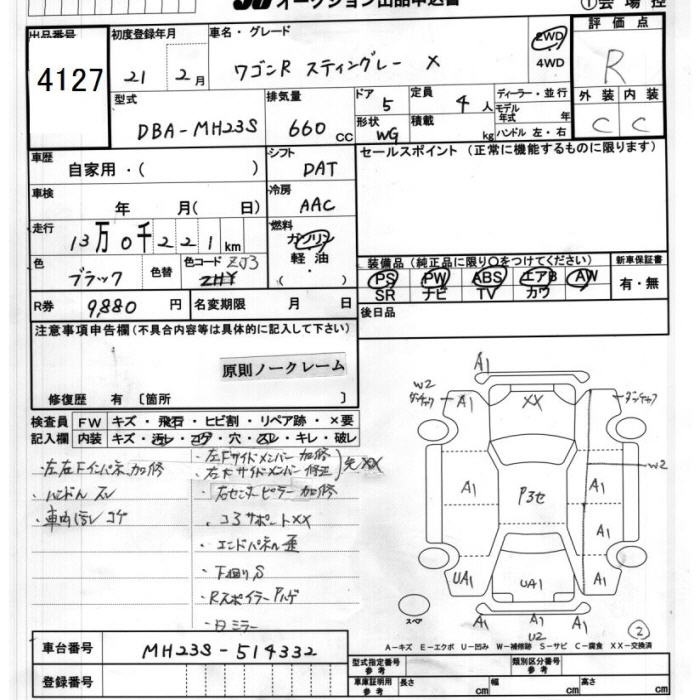 オークション出品申込書
①会場控
出品番号
4127
初度登録年月
21 2月
車名・グレード
ワゴンR スティングレー X
2WD
4WD
評価点
R
型式
DBA-MH23S
排気量
660 cc
ドア
5
形状
WG
定員
4人
積載
kg
ディーラー・並行
モデル年式 年
ハンドル 左・右
外装 内装
C C
車歴
自家用・( )
シフト
DAT
セールスポイント (正常に機能するものに限ります)
車検
年 月( 日)
冷房
AAC
走行
13万0千221km
燃料
ガソリン
軽・油
( )
色
ブラック
色替
色コード
ZJ3
ZHY
装備品 (純正品に限り○をつけてください)
PS PW ABS エアB AW
SR ナビ TV カワ
新車保証書
有・無
R券
9,880円
名変期限 月 日
後日品
注意事項申告欄 (不具合内容等は具体的に記入して下さい)
原則ノークレーム
修復歴 有 〔箇所 〕
検査員
記入欄
FW キズ・飛石・ヒビ割・リペア跡・×要
内装 キズ・汚レ・コゲ・穴・スレ・キレ・破レ
・左右Fインパネ加修
・ハンドルスレ
・車内汚レ コゲ
・左Fサイドメンバー加修
・右Fサイドメンバー修正
先XX
・右センターピラー加修
・コアサポートXX
・エンドパネル歪
・下回りS
・Rスポイラー
・ミラー
A1
W2
A1
XX
W2
A1
P3セ
A1
A1
UA1
UA1
A1
A1
A1
A1
U2
スペア
②
A-キズ E-エクボ U-凹み W-補修跡 S-サビ C-腐食 XX-交換済
車台番号
MH23S-514332
登録番号
型式指定番号
参考
類別区分番号
参考
車庫証明用
参考
長さ cm
幅 cm
高さ cm